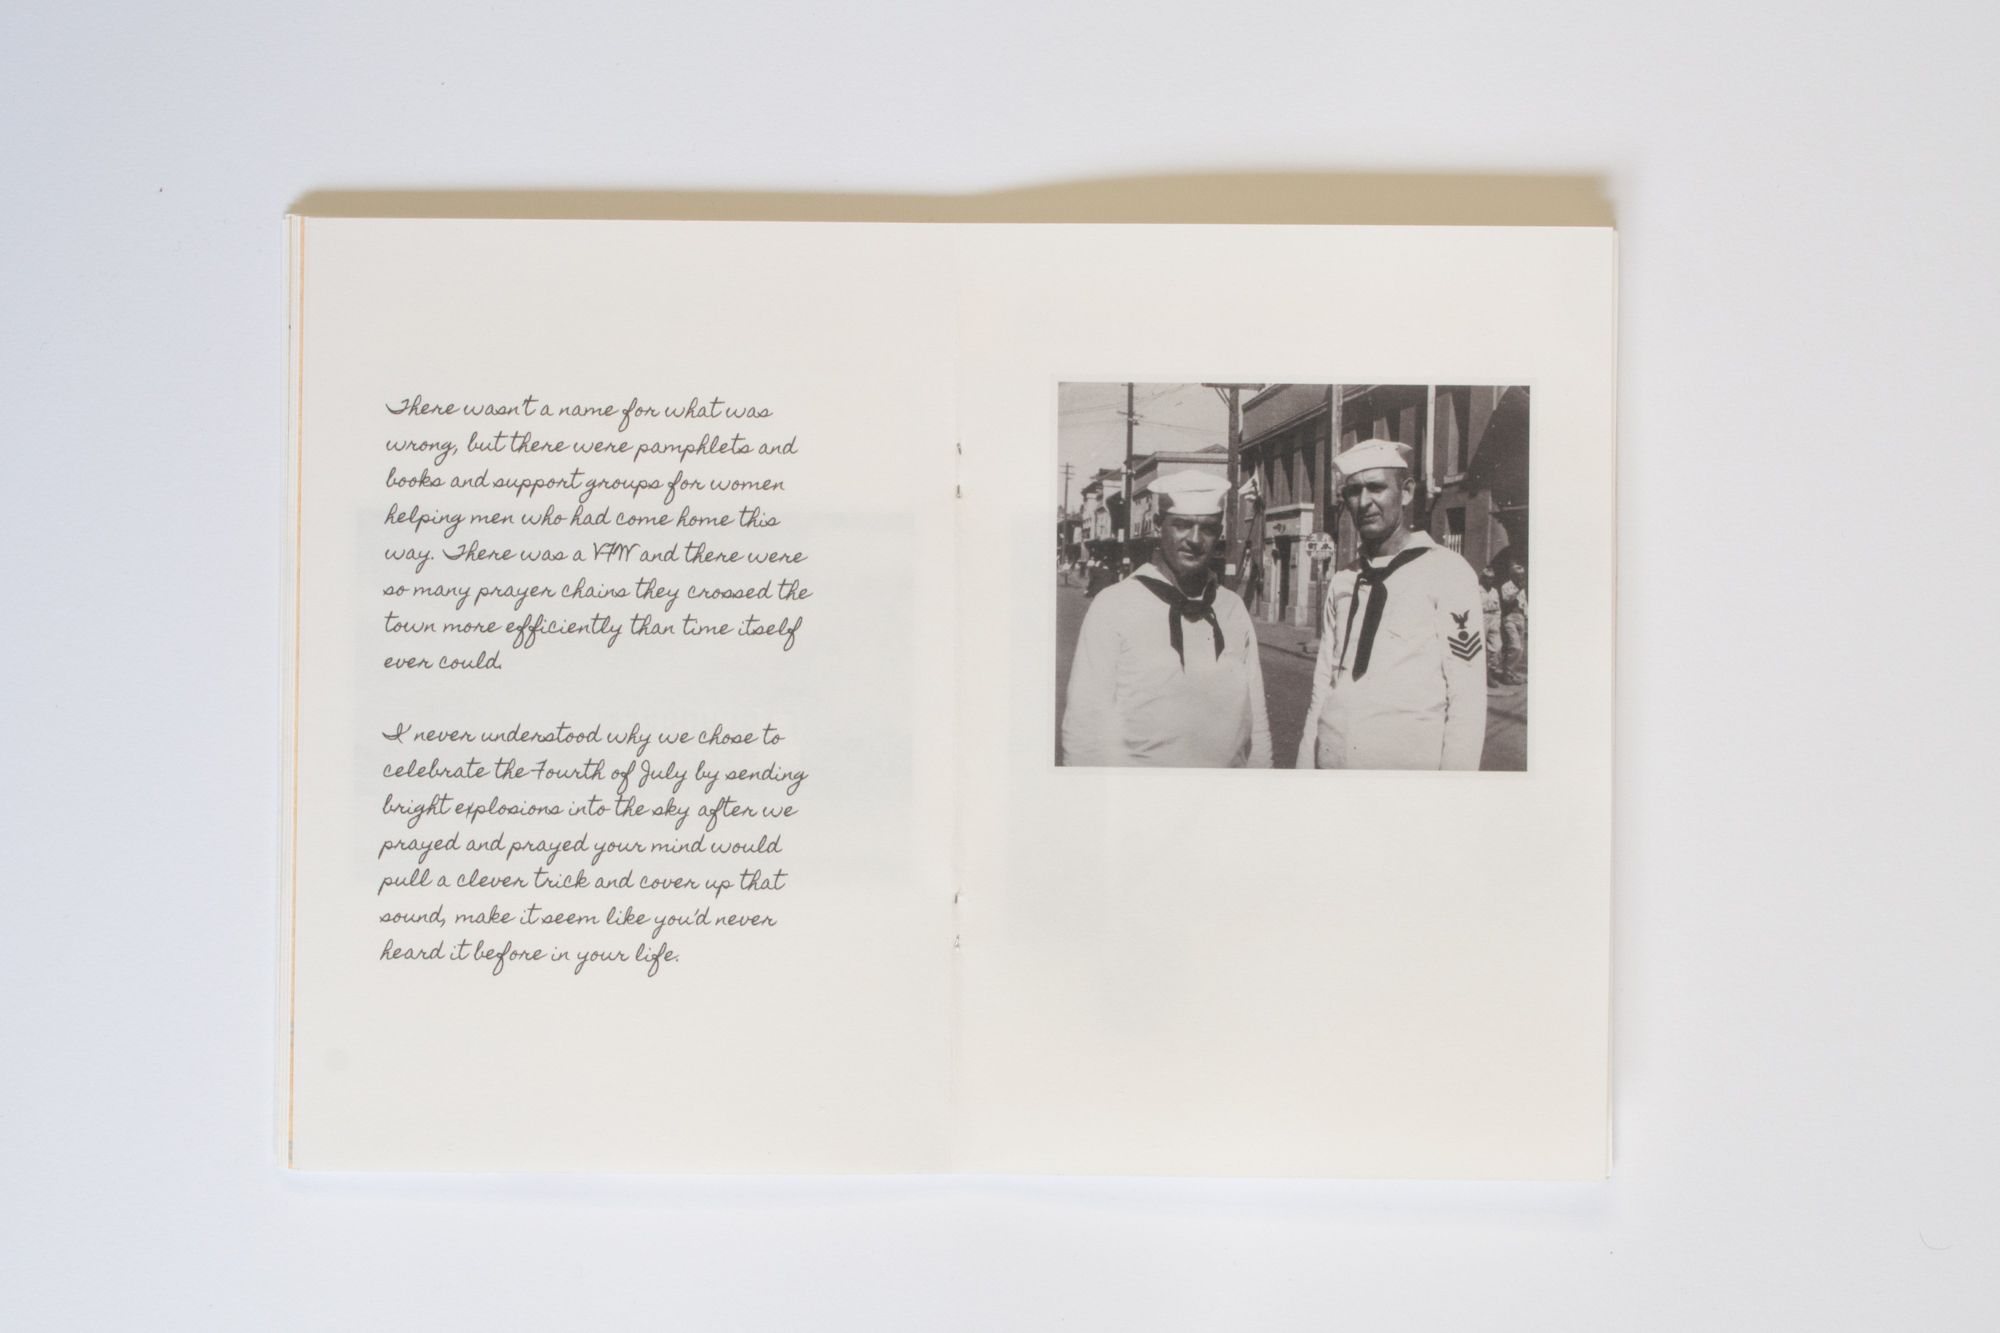 There wasn't a name for what was
wrong, but there were pamphlets and
books and support groups for women
helping men who had come home this
way. There was a VFW and there were
so many prayer chains they crossed the
town more efficiently than time itself
ever could.
I never understood why we chose to
celebrate the Fourth of July by sending
bright explosions into the sky after we
prayed and prayed your mind would
pull a clever trick and cover up that
sound, make it seem like you'd never
heard it before in your life.